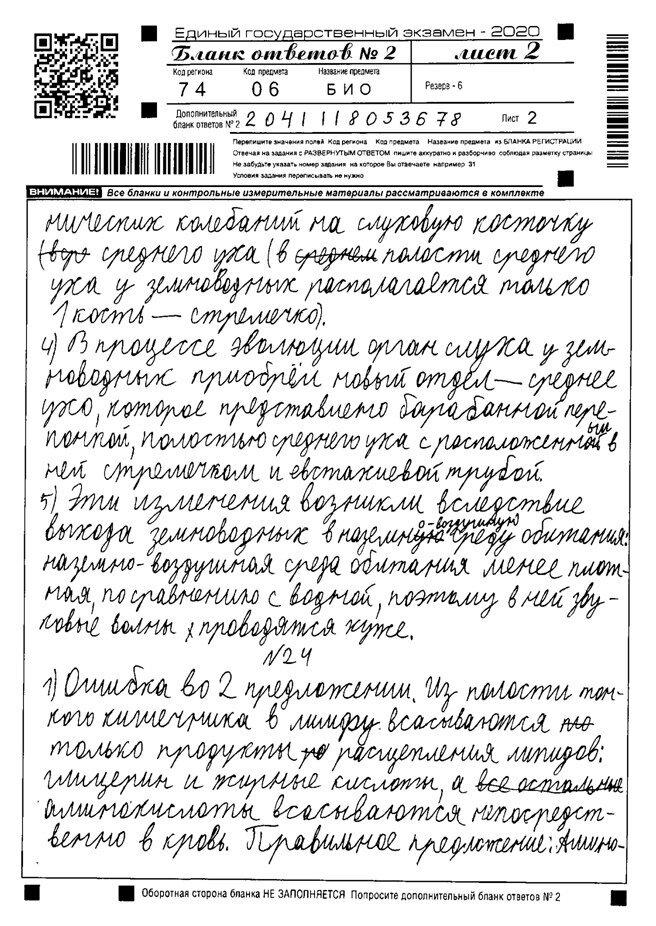 Единый государственный экзамен - 2020
Бланк ответов № 2 лист 2
Код региона Код предмета Название предмета
74 06 БИО Резерв - 6
Дополнительный бланк ответов № 2 2041118053678 Лист 2
Перепишите значения полей Код региона Код предмета Название предмета из БЛАНКА РЕГИСТРАЦИИ
Отвечая на задания с РАЗВЕРНУТЫМ ОТВЕТОМ пишите аккуратно и разборчиво соблюдая разметку страницы
Не забудьте указать номер задания на которое Вы отвечаете например 31
Условия задания переписывать не нужно
ВНИМАНИЕ! Все бланки и контрольные измерительные материалы рассматриваются в комплекте
нических колебаний на слуховую косточку
среднего уха (в среднем полости среднего
уха у земноводных располагается только
1 кость — стремечко).
4) В процессе эволюции орган слуха у зем-
новодных приобрёл новый отдел — среднее
ухо, которое представлено барабанной пере-
понкой, полостью среднего уха с расположенным в
ней стремечком и евстахиевой трубой.
5) Эти изменения возникли вследствие
выхода земноводных в наземно-воздушную среду обитания:
наземно-воздушная среда обитания менее плот-
ная, по сравнению с водной, поэтому в ней зву-
ковые волны проводятся хуже.
№24
1) Ошибка во 2 предложении. Из полости тон-
кого кишечника в лимфу всасываются
только продукты расщепления липидов:
глицерин и жирные кислоты, а все остальные
аминокислоты всасываются непосредст-
венно в кровь. Правильное предложение: Амино-
Оборотная сторона бланка НЕ ЗАПОЛНЯЕТСЯ Попросите дополнительный бланк ответов № 2